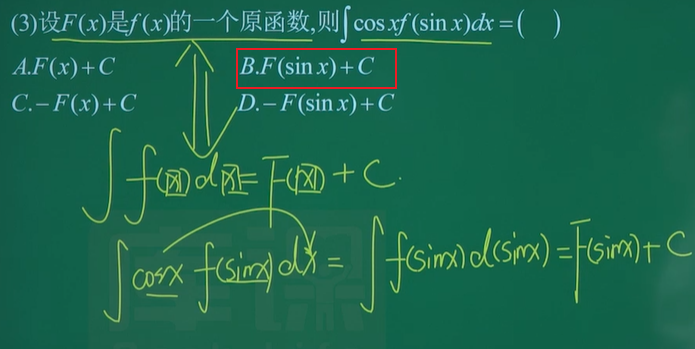 (3)设F(x)是f(x)的一个原函数,则∫cos xf(sin x)dx=(　)
A.F(x)+C　B.F(sin x)+C
C.−F(x)+C　D.−F(sin x)+C
∫f(x)dx=F(x)+C.
∫cosx f(sinx)dx=∫f(sinx)d(sinx)=F(sinx)+C